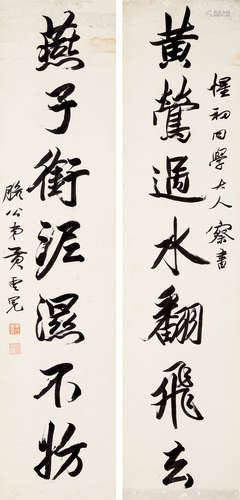 黄鶯過水翻飛去
燕子銜泥濕不妨
初同學大人察書
弟黄雲